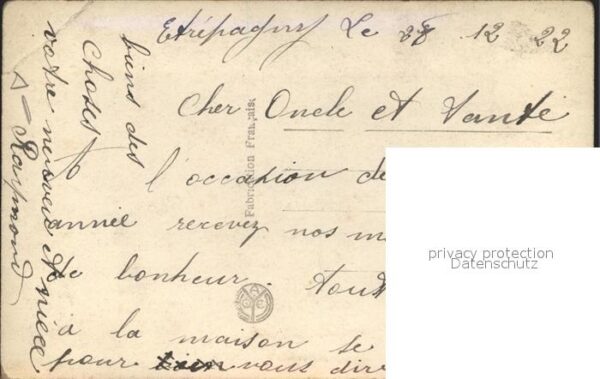 Etrépagny Le 28 12 22
Cher Oncle et Tante
A l'occasion de
année recevez nos m
de bonheur. Tout
à la maison se
pour vous dir
biens des
choses
votre neuveu et niece
Raymond
Fabrication Française
privacy protection
Datenschutz